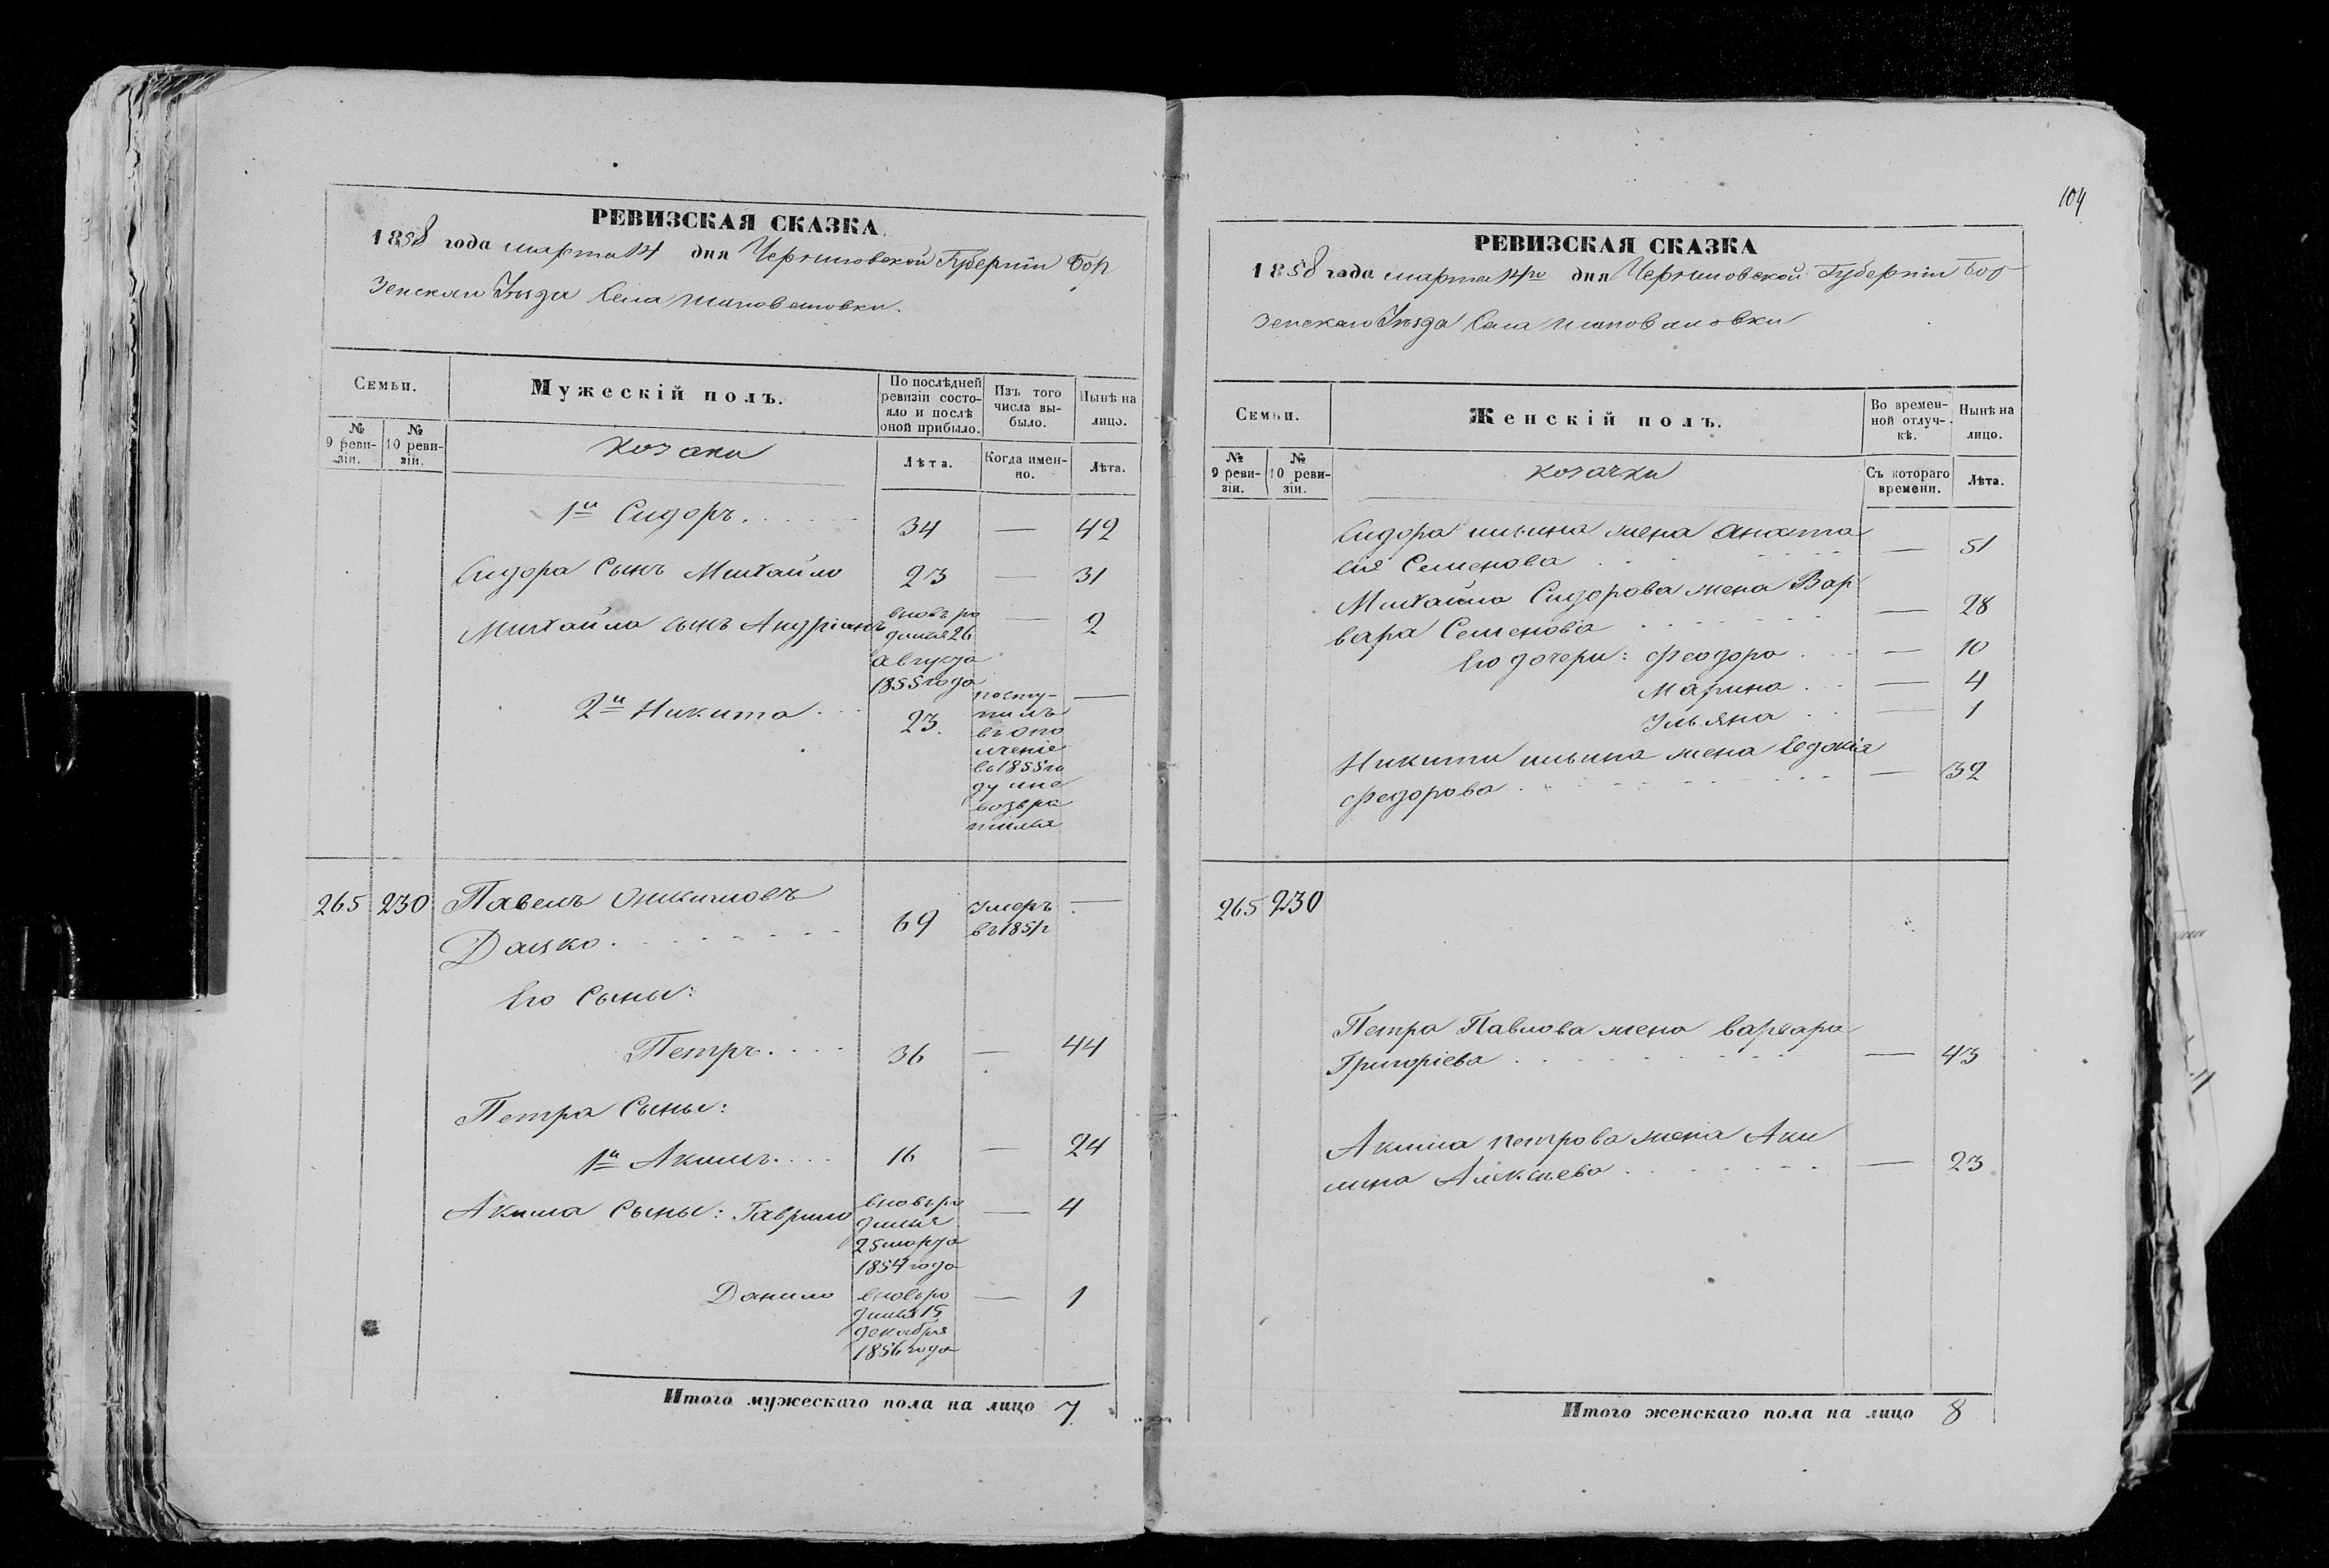 РЕВИЗСКАЯ СКАЗКА
1858 года марта 14 дня Черниговской Губерніи Бор
зенскаго Уѣзда Села Шаповаловки.
Семьи.
Мужескій полъ.
По послѣдней ревизіи состояло и послѣ оной прибыло.
Изъ того числа выбыло.
Нынѣ на лицо.
№ 9 ревизіи.
№ 10 ревизіи.
козаки
Лѣта.
Когда именно.
Лѣта.
1й Сидоръ 34 — 42
Сидора Сынъ Михайло 23 — 31
Михайла сынъ Андріянъ вновь ро — 2
дился 26
августа
1855 года
2й Никита 23. посту- —
пилъ
въ опо
лченіе
въ 1855 го
ду и не
возвра
тился
265 230 Павелъ Оникиновъ 69 умеръ —
Дацко въ 1851 г
Его Сыны:
Петръ 36 — 44
Петра Сыны:
1й Акимъ 16 — 24
Акима Сыны: Гаврило вновь ро — 4
дился
25 марта
1854 года
Данило вновь ро — 1
дился 15
декабря
1856 года
Итого мужескаго пола на лицо 7
104
РЕВИЗСКАЯ СКАЗКА
1858 года марта 14го дня Черниговской Губерніи Бор
зенскаго Уѣзда Села Шаповаловки
Семьи.
Женскій полъ.
Во временной отлучкѣ.
Нынѣ на лицо.
№ 9 ревизіи.
№ 10 ревизіи.
козачки
Съ котораго времени.
Лѣта.
Сидора ильина жена Анаста
сія Семенова — 51
Михайла Сидорова жена Вар
вара Семенова — 28
Его дочери: Феодора — 10
Марина — 4
Ульяна — 1
Никиты ильина жена Евдокія
Федорова — 32
265 230
Петра Павлова жена варвара
Григоріева — 43
Акима петрова жена Аки
лина Алексѣева — 23
Итого женскаго пола на лицо 8